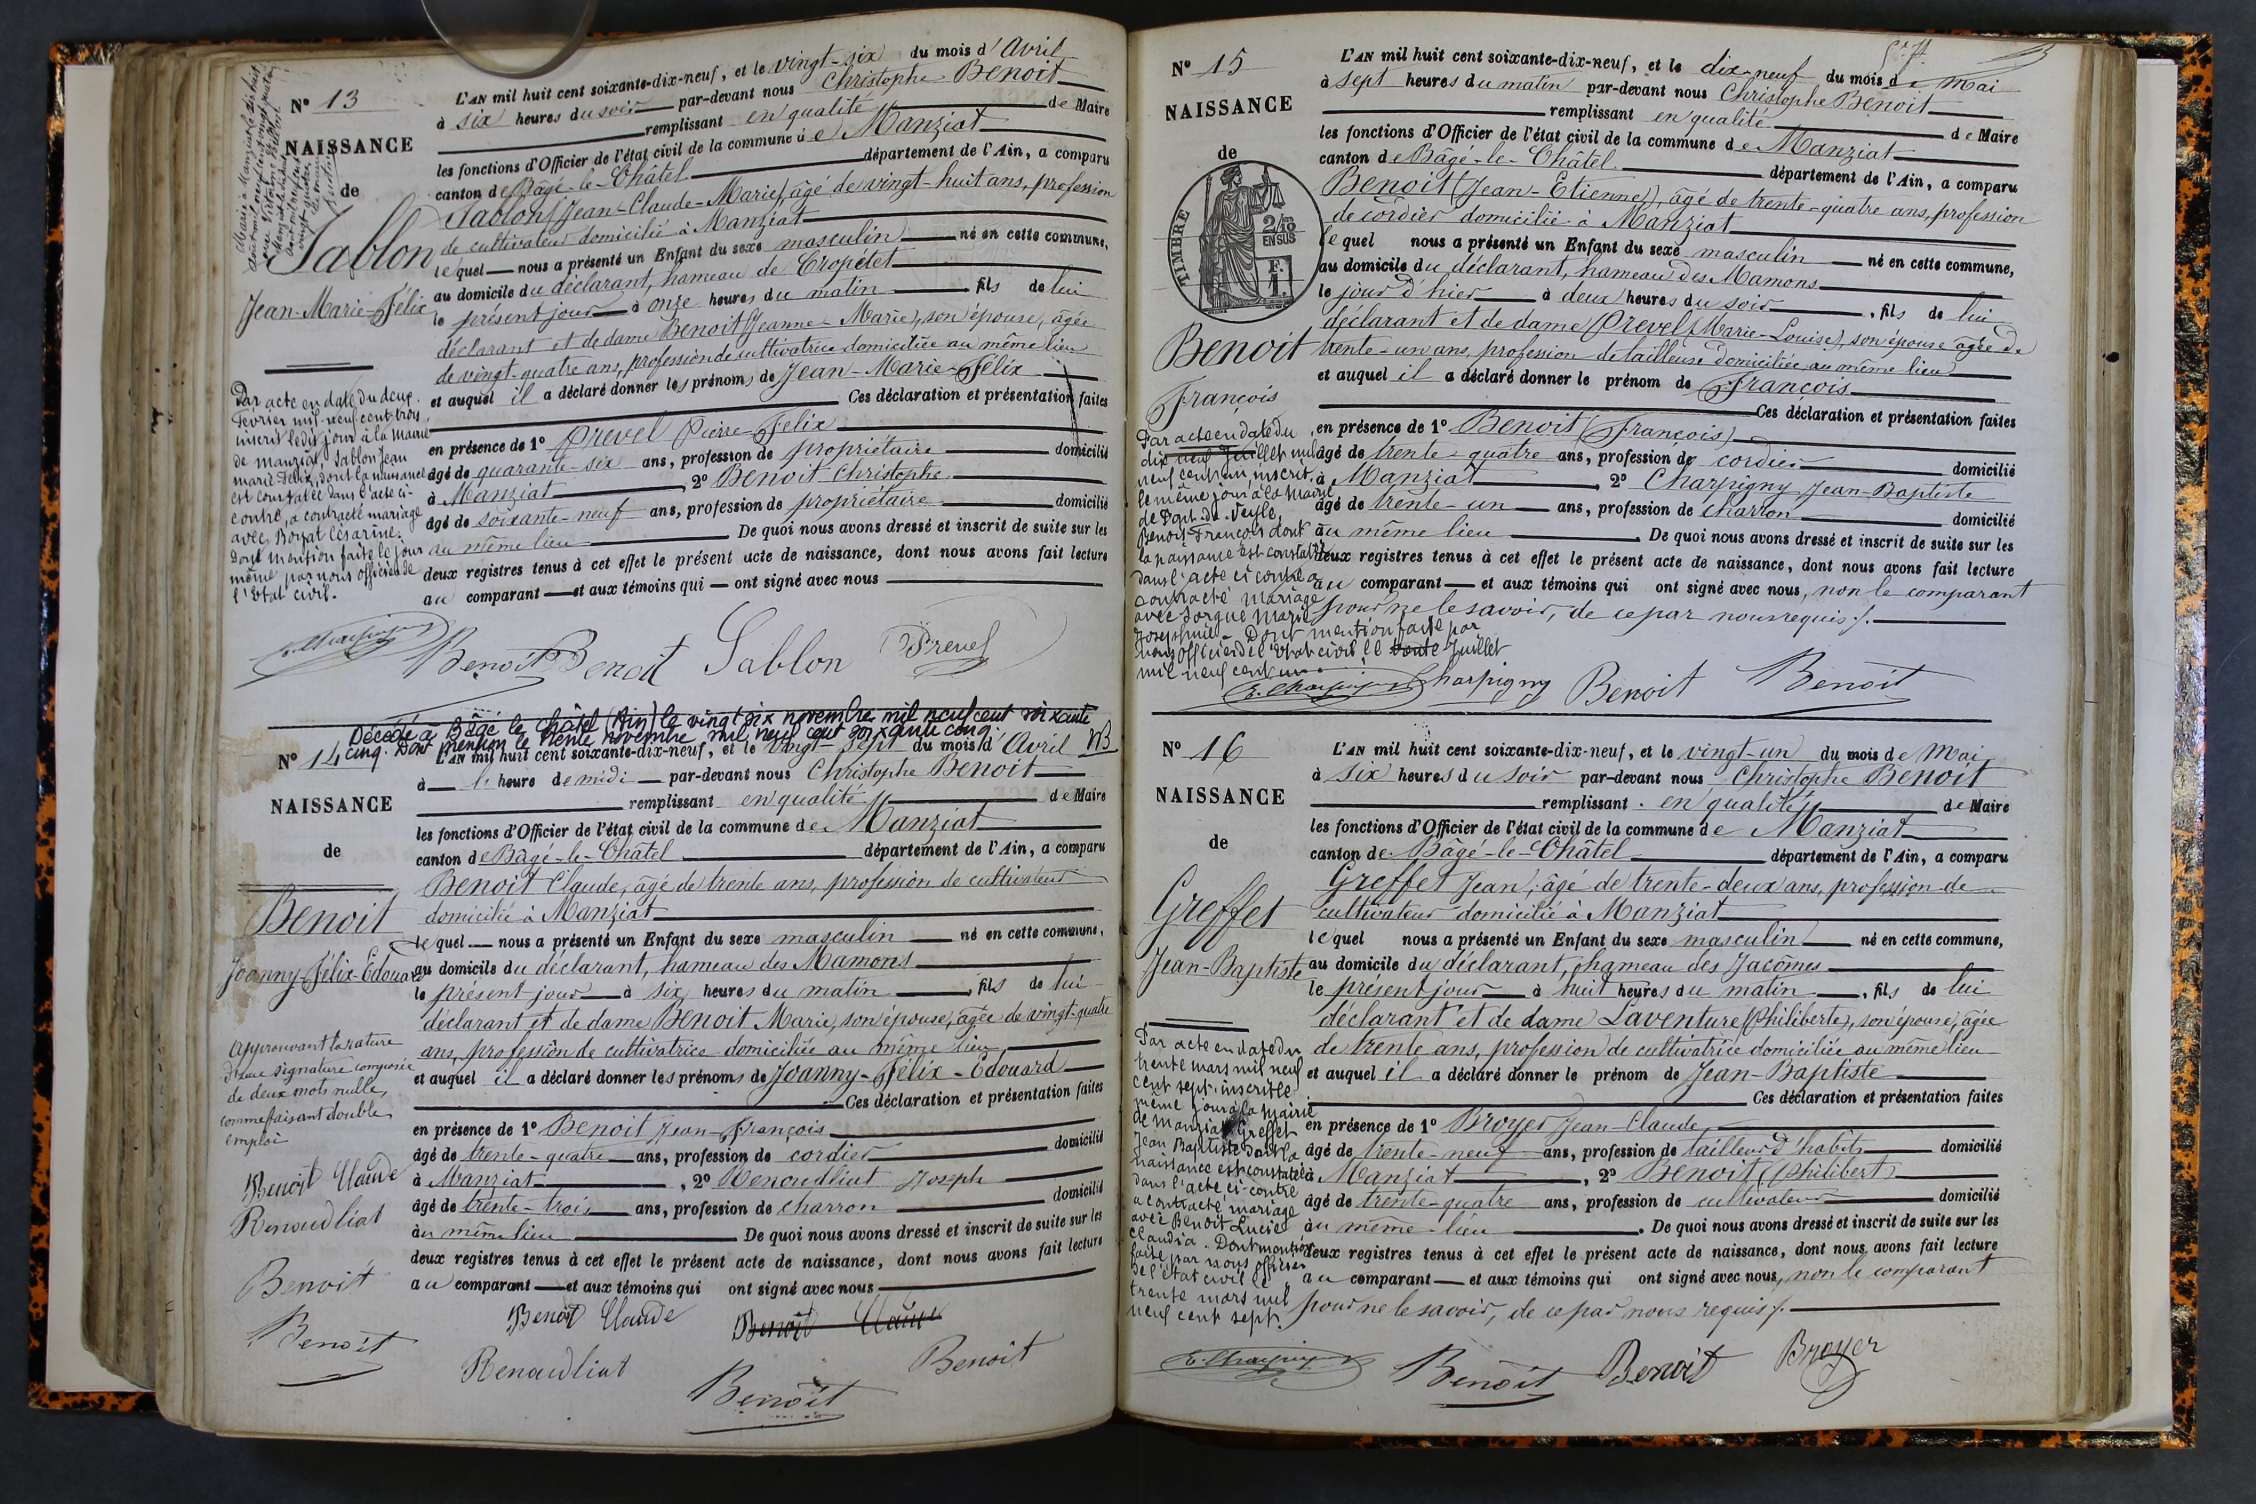 N° 13
NAISSANCE
de
Sablon
Jean-Marie-Félix
Par acte en date du deux
Février mil neuf cent trois
inscrit le dit jour à la Mairie
de Manziat, Sablon Jean
Marie Félix, dont la naissance
est constatée dans l'acte ci-
contre, a contracté mariage
avec Boyat Césarine.
Dont mention faite le jour
même, par nous officier de
l'Etat civil.
L'AN mil huit cent soixante-dix-neuf, et le vingt-six du mois d'Avril
à six heures du soir par-devant nous Christophe Benoit
remplissant en qualité de Maire
les fonctions d'Officier de l'état civil de la commune de Manziat
canton de Bâgé-le-Châtel département de l'Ain, a comparu
Sablon (Jean-Claude-Marie), âgé de vingt-huit ans, profession
de cultivateur domicilié à Manziat
lequel nous a présenté un Enfant du sexe masculin né en cette commune,
au domicile du déclarant, hameau de Cropetet
le présent jour à onze heures du matin, fils de lui
déclarant et de dame Benoit (Jeanne-Marie), son épouse, âgée
de vingt-quatre ans, profession de cultivatrice domiciliée au même lieu
et auquel il a déclaré donner les prénoms de Jean-Marie-Félix
Ces déclaration et présentation faites
en présence de 1° Prevel Pierre-Félix
âgé de quarante-six ans, profession de propriétaire domicilié
à Manziat, 2° Benoit Christophe
âgé de soixante-neuf ans, profession de propriétaire domicilié
au même lieu De quoi nous avons dressé et inscrit de suite sur les
deux registres tenus à cet effet le présent acte de naissance, dont nous avons fait lecture
au comparant et aux témoins qui ont signé avec nous
Benoit Benoit Sablon Prevel
Décédé à Bâgé le Châtel (Ain) le vingt six novembre mil neuf cent soixante
cinq. Dont mention le trente novembre mil neuf cent soixante cinq.
N° 14
NAISSANCE
de
Benoit
Joanny-Félix-Édouard
Approuvant la rature
d'une signature composée
de deux mots nulle,
comme faisant double
emploi
Benoit Claude
Renoudliat
Benoit
Benoit
L'AN mil huit cent soixante-dix-neuf, et le vingt-sept du mois d'Avril
à heure de midi par-devant nous Christophe Benoit
remplissant en qualité de Maire
les fonctions d'Officier de l'état civil de la commune de Manziat
canton de Bâgé-le-Châtel département de l'Ain, a comparu
Benoit Claude, âgé de trente ans, profession de cultivateur
domicilié à Manziat
lequel nous a présenté un Enfant du sexe masculin né en cette commune,
au domicile du déclarant, hameau des Mamons
le présent jour à six heures du matin, fils de lui
déclarant et de dame Benoit Marie, son épouse, âgée de vingt-quatre
ans, profession de cultivatrice domiciliée au même lieu
et auquel il a déclaré donner les prénoms de Joanny-Félix-Edouard
Ces déclaration et présentation faites
en présence de 1° Benoit Jean-François
âgé de trente-quatre ans, profession de cordier domicilié
à Manziat, 2° Renoudliat Joseph
âgé de trente-trois ans, profession de charron domicilié
au même lieu De quoi nous avons dressé et inscrit de suite sur les
deux registres tenus à cet effet le présent acte de naissance, dont nous avons fait lecture
au comparant et aux témoins qui ont signé avec nous
Benoit Claude Benoit Claude
Renoudliat Benoit Benoit
N° 15
NAISSANCE
de
TIMBRE
2/10
EN SUS
F.
1.
Benoit
François
Par acte en date du
dix neuf Juillet mil
neuf cent un, inscrit
le même jour à la Mairie
de Pont-de-Veyle,
Benoit François dont
la naissance est constatée
dans l'acte ci contre a
contracté mariage
avec Jorgue Marie
Josephine - Dont mention faite par
nous officier de l'Etat civil, le trente Juillet
mil neuf cent un
L'AN mil huit cent soixante-dix-neuf, et le dix-neuf du mois de Mai
à sept heures du matin par-devant nous Christophe Benoit
remplissant en qualité de Maire
les fonctions d'Officier de l'état civil de la commune de Manziat
canton de Bâgé-le-Châtel département de l'Ain, a comparu
Benoit (Jean-Etienne), âgé de trente-quatre ans, profession
de cordier domicilié à Manziat
lequel nous a présenté un Enfant du sexe masculin né en cette commune,
au domicile du déclarant, hameau des Mamons
le jour d'hier à deux heures du soir, fils de lui
déclarant et de dame Prevel (Marie-Louise), son épouse âgée de
trente-un ans, profession de tailleuse domiciliée au même lieu
et auquel il a déclaré donner le prénom de François
Ces déclaration et présentation faites
en présence de 1° Benoit (François)
âgé de trente-quatre ans, profession de cordier domicilié
à Manziat, 2° Charpigny Jean-Baptiste
âgé de trente-un ans, profession de charron domicilié
au même lieu De quoi nous avons dressé et inscrit de suite sur les
deux registres tenus à cet effet le présent acte de naissance, dont nous avons fait lecture
au comparant et aux témoins qui ont signé avec nous, non le comparant
pour ne le savoir, de ce par nous requis ./.
Charpigny Benoit Benoit
N° 16
NAISSANCE
de
Greffet
Jean-Baptiste
Par acte en date du
trente mars mil neuf
cent sept, inscrit le
même jour à la Mairie
de Manziat Greffet
Jean Baptiste dont la
naissance est constatée
dans l'acte ci-contre
a contracté mariage
avec Benoit Lucie
Claudia. Dont mention
faite par nous officier
de l'état civil le
trente mars mil
neuf cent sept.
L'AN mil huit cent soixante-dix-neuf, et le vingt-un du mois de Mai
à six heures du soir par-devant nous, Christophe Benoit
remplissant en qualité de Maire
les fonctions d'Officier de l'état civil de la commune de Manziat
canton de Bâgé-le-Châtel département de l'Ain, a comparu
Greffet Jean, âgé de trente-deux ans, profession de
cultivateur domicilié à Manziat
lequel nous a présenté un Enfant du sexe masculin né en cette commune,
au domicile du déclarant, hameau des Jacômes
le présent jour à huit heures du matin, fils de lui
déclarant et de dame Laventure (Philiberte), son épouse, âgée
de trente ans, profession de cultivatrice domiciliée au même lieu
et auquel il a déclaré donner le prénom de Jean-Baptiste
Ces déclaration et présentation faites
en présence de 1° Broyer Jean-Claude
âgé de trente-neuf ans, profession de tailleur d'habits domicilié
à Manziat, 2° Benoit (Philibert)
âgé de trente-quatre ans, profession de cultivateur domicilié
au même lieu. De quoi nous avons dressé et inscrit de suite sur les
deux registres tenus à cet effet le présent acte de naissance, dont nous avons fait lecture
au comparant et aux témoins qui ont signé avec nous, non le comparant
pour ne le savoir, de ce par nous requis ./.
Benoit Benoit Broyer